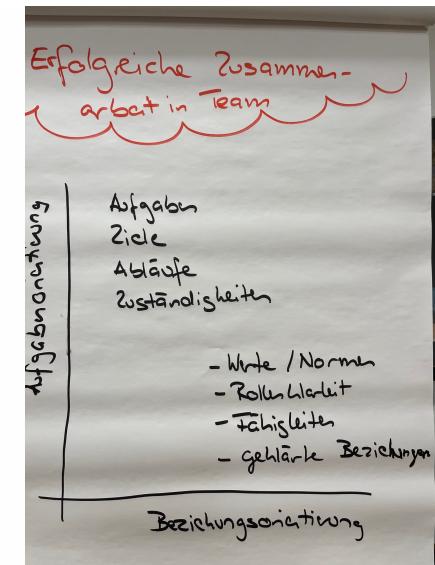 Erfolgreiche Zusammen-
arbeit in Team
Aufgabenorientierung
Aufgaben
Ziele
Abläufe
Zuständigkeiten
- Werte / Normen
- Rollenklarheit
- Fähigkeiten
- geklärte Beziehungen
Beziehungsorientierung